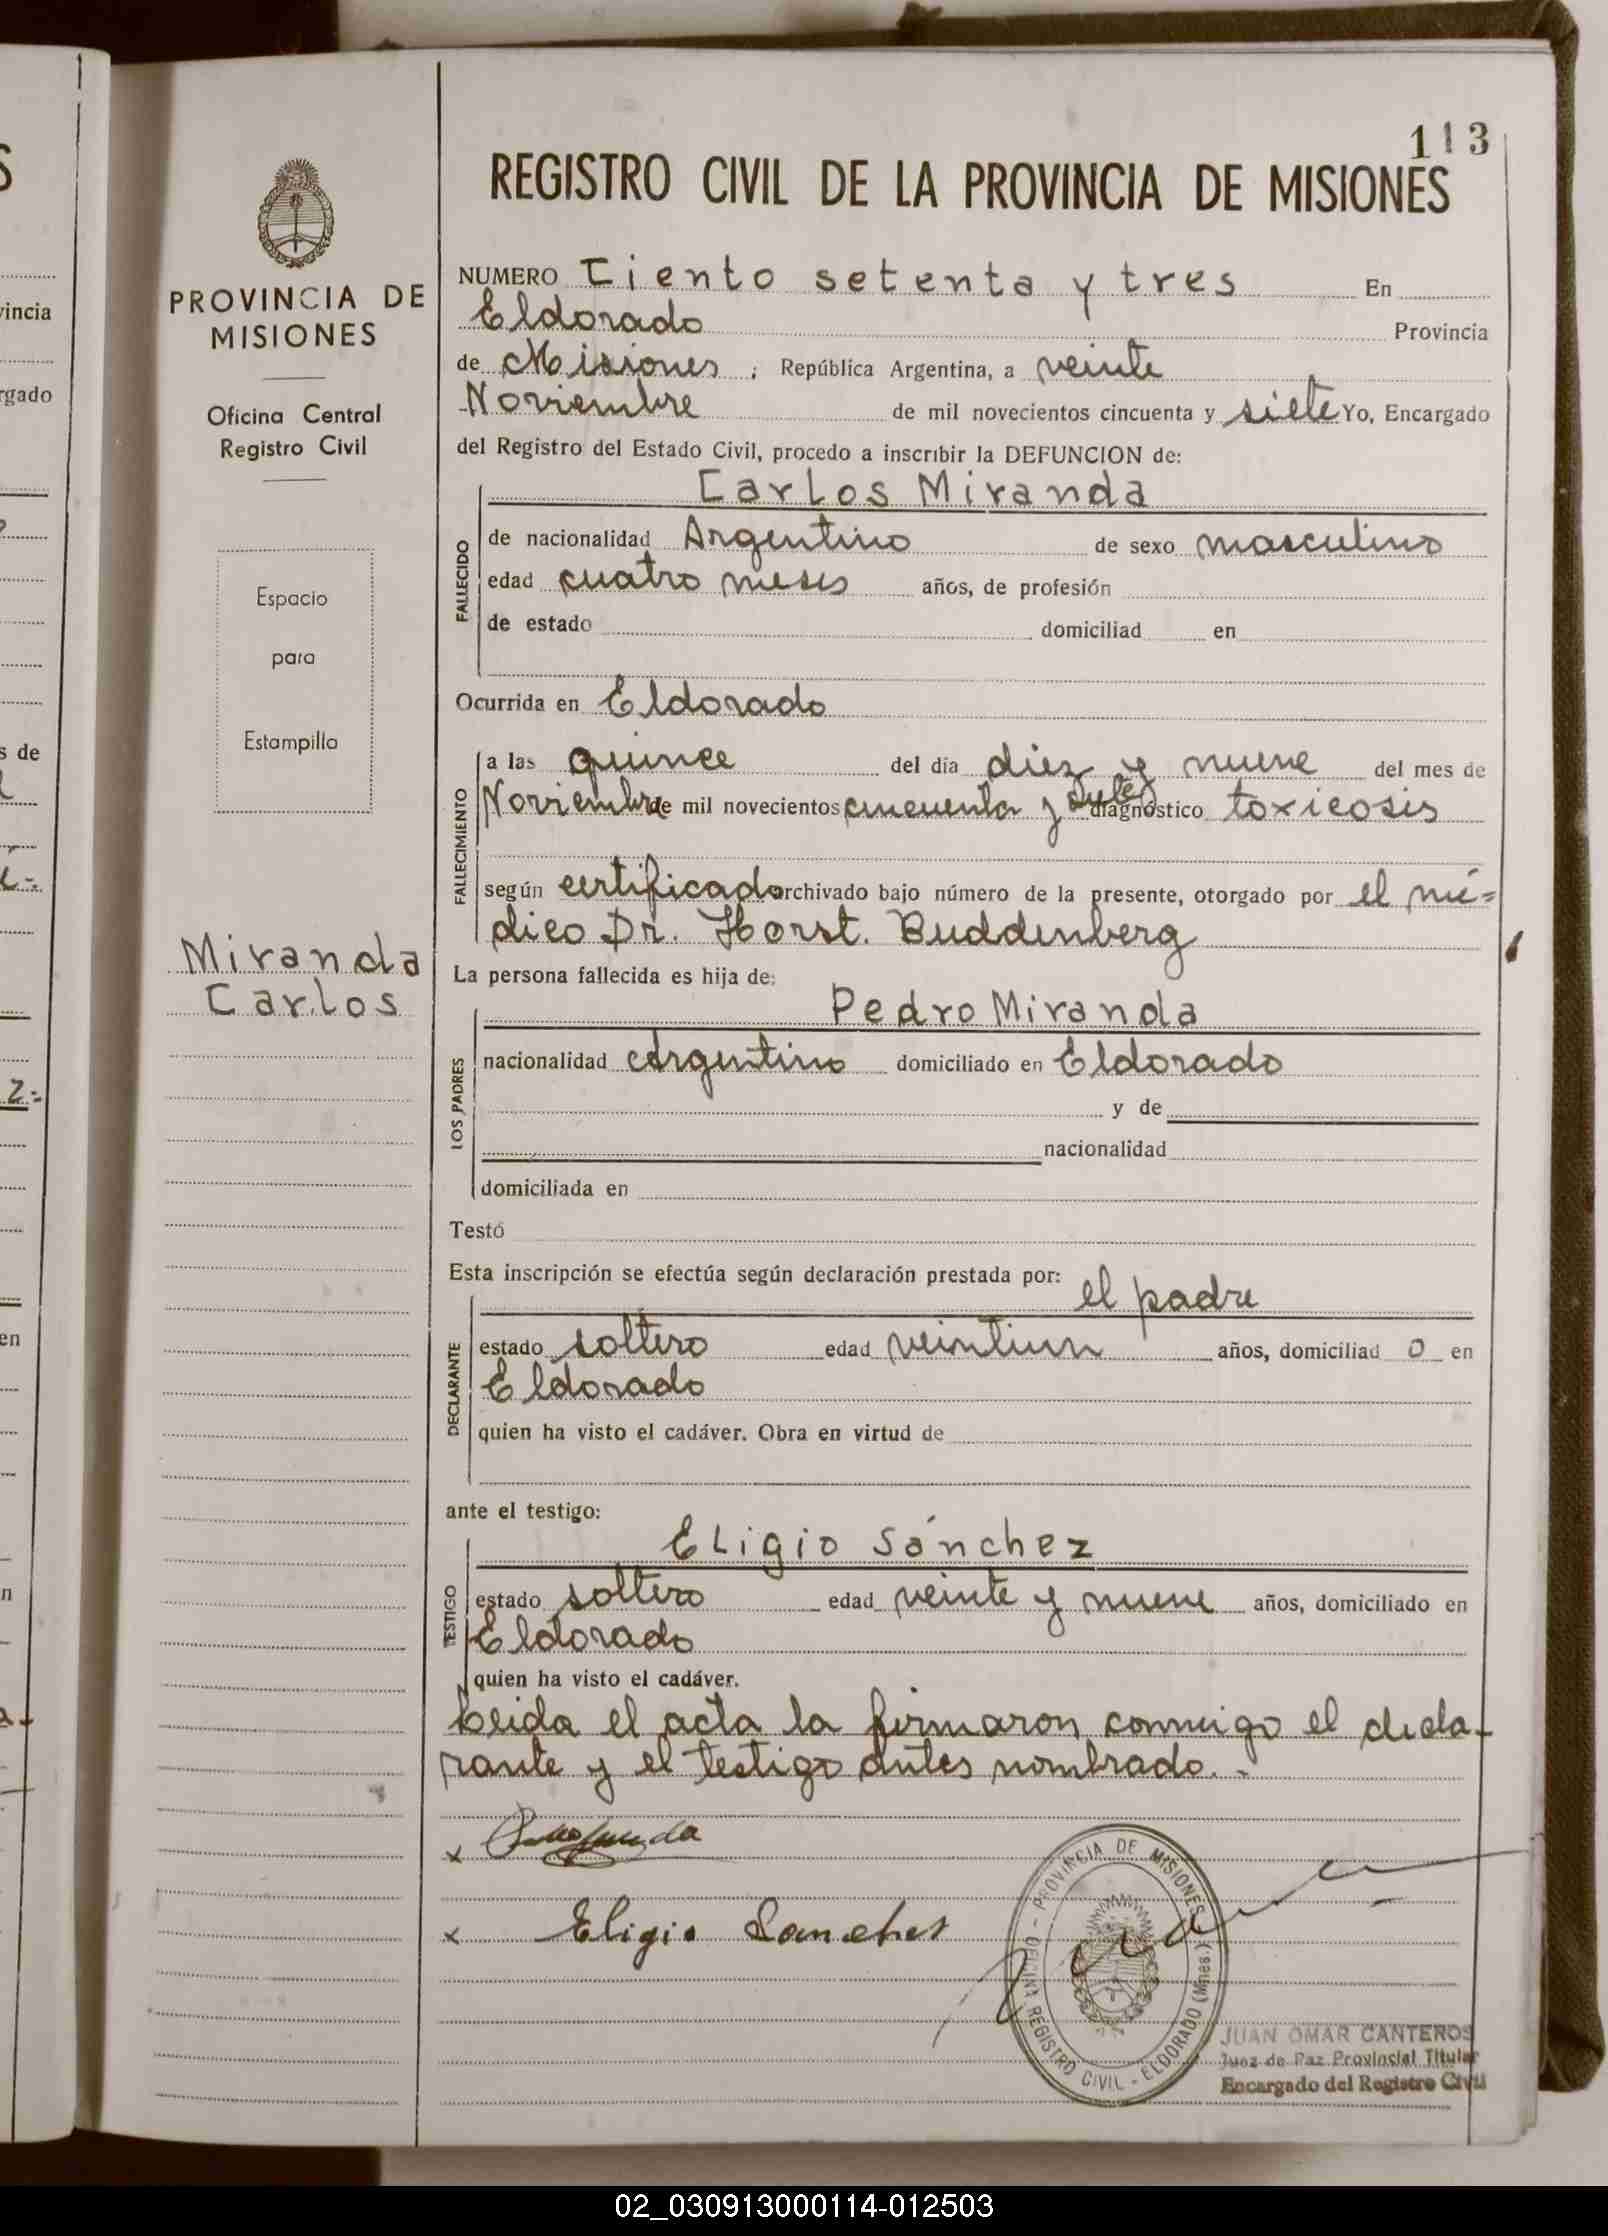 113
REGISTRO CIVIL DE LA PROVINCIA DE MISIONES
PROVINCIA DE
MISIONES
Oficina Central
Registro Civil
Espacio
para
Estampilla
Miranda
Carlos
NUMERO Ciento setenta y tres En
Eldorado Provincia
de Misiones ; República Argentina, a veinte
Noviembre de mil novecientos cincuenta y siete Yo, Encargado
del Registro del Estado Civil, procedo a inscribir la DEFUNCION de:
Carlos Miranda
FALLECIDO
de nacionalidad Argentino de sexo masculino
edad cuatro meses años, de profesión
de estado domiciliad en
Ocurrida en Eldorado
FALLECIMIENTO
a las quince del día diez y nueve del mes de
Noviembre de mil novecientos cincuenta y siete diagnóstico toxicosis
según certificado archivado bajo número de la presente, otorgado por el mé=
dico Dr. Horst. Buddenberg
La persona fallecida es hija de:
Pedro Miranda
LOS PADRES
nacionalidad Argentino domiciliado en Eldorado
y de
nacionalidad
domiciliada en
Testó
Esta inscripción se efectúa según declaración prestada por:
el padre
DECLARANTE
estado soltero edad veintiun años, domiciliad o en
Eldorado
quien ha visto el cadáver. Obra en virtud de
ante el testigo:
Eligio Sánchez
TESTIGO
estado soltero edad veinte y nueve años, domiciliado en
Eldorado
quien ha visto el cadáver.
Leida el acta la firmaron conmigo el decla-
rante y el testigo antes nombrado.-
x
x Eligio Sanches
PROVINCIA DE MISIONES
REGISTRO CIVIL - ELDORADO (Mnes.)
JUAN OMAR CANTEROS
Juez de Paz Provincial Titular
Encargado del Registro Civil
02_030913000114-012503